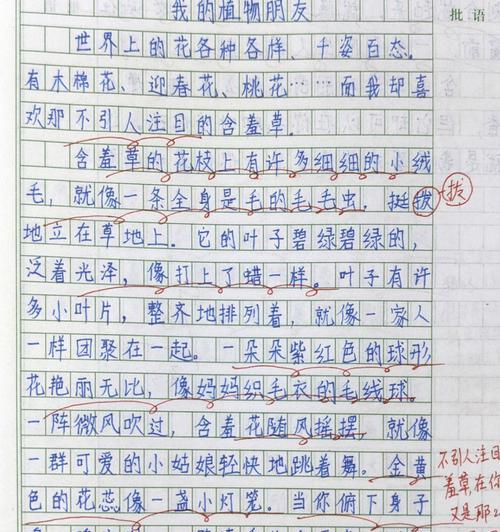 我的植物朋友
批语
世界上的花各种各样、千姿百态。
有木棉花、迎春花、桃花……而我却喜
欢那不引人注目的含羞草。
含羞草的花枝上有许多细细的小绒
毛，就像一条全身是毛的毛毛虫。挺拨
拔
地立在草地上。它的叶子碧绿碧绿的，
泛着光泽，像打上了蜡一样。叶子有许
多小叶片，整齐地排列着，就像一家人
一样团聚在一起。一朵朵紫红色的球形
花艳丽无比，像妈妈织毛衣的毛线球。
一阵微风吹过，含羞花随风摇摆，就像
一群可爱的小姑娘轻快地跳着舞。金黄
不引人注目
色的花蕊像一盏小灯笼。当你俯下身子
羞草在你
又是那